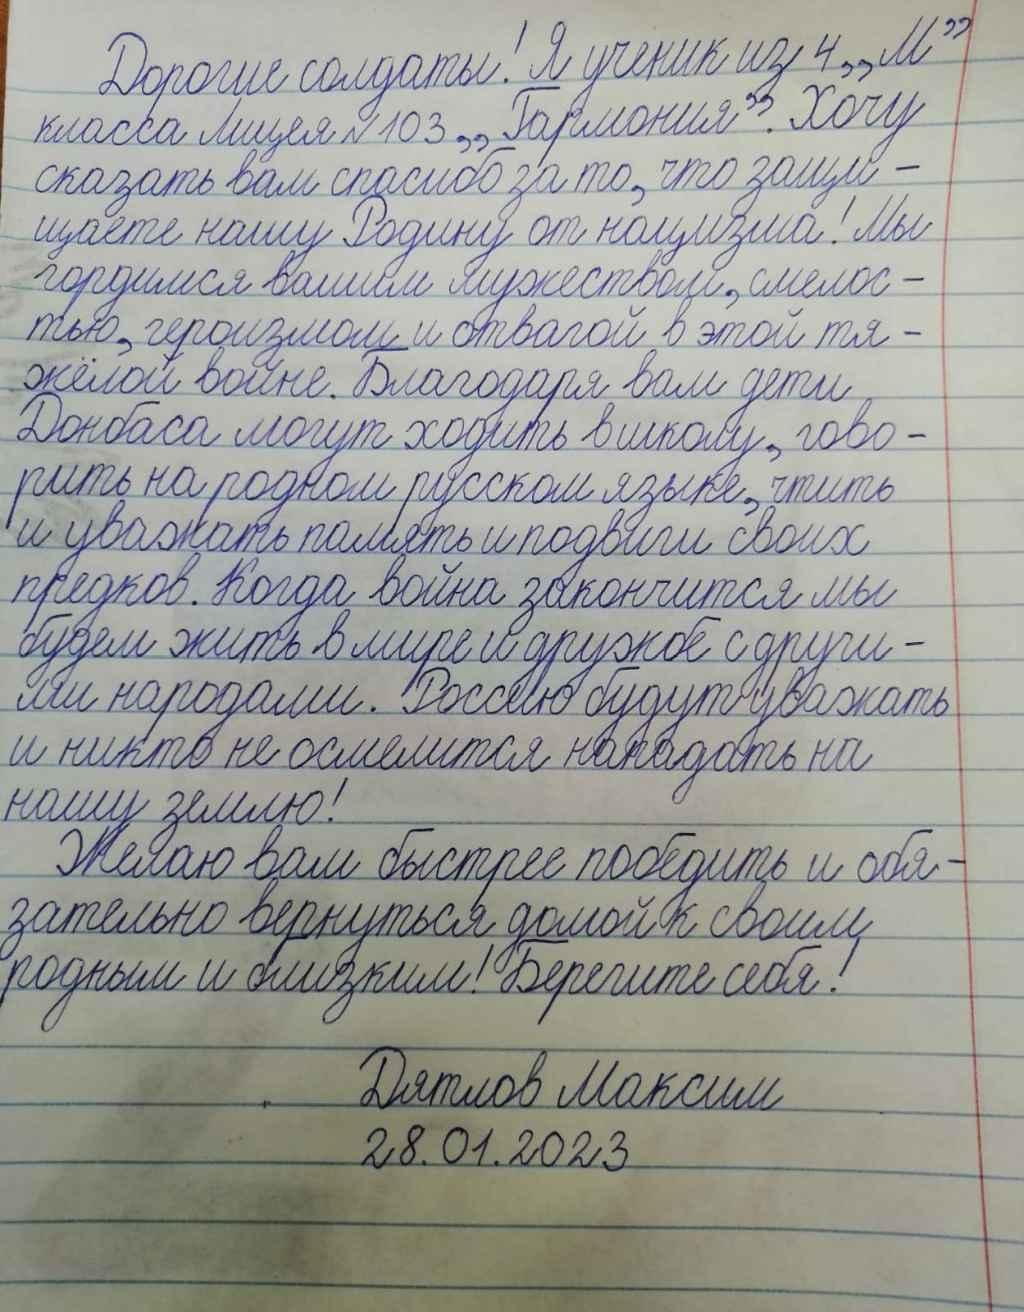 Дорогие солдаты! Я ученик из 4 „М”
класса Лицея №103 „Гармония”. Хочу
сказать вам спасибо за то, что защи-
щаете нашу Родину от нацизма! Мы
гордимся вашим мужеством, смелос-
тью, героизмом и отвагой в этой тя-
жёлой войне. Благодаря вам дети
Донбаса могут ходить в школу, гово-
рить на родном русском языке, чтить
и уважать память и подвиги своих
предков. Когда война закончится мы
будем жить в мире и дружбе с други-
ми народами. Россию будут уважать
и никто не осмелится нападать на
нашу землю!
Желаю вам быстрее победить и обя-
зательно вернуться домой к своим
родным и близким! Берегите себя!
Дятлов Максим
28.01.2023